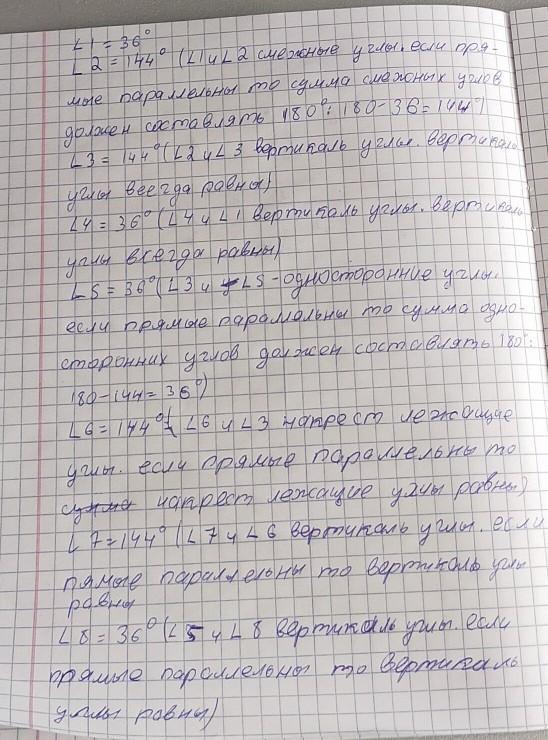 ∠1 = 36°
∠2 = 144° (∠1 и ∠2 смежные углы. если пря-
мые параллельны то сумма смежных углов
должен составлять 180°: 180-36=144°)
∠3 = 144° (∠2 и ∠3 вертикаль углы. вертикаль
углы всегда равны)
∠4 = 36° (∠4 и ∠1 вертикаль углы. вертикаль
углы всегда равны)
∠5 = 36° (∠3 и ∠5 - односторонние углы.
если прямые параллельны то сумма одно-
сторонних углов должен составлять 180°:
180-144=36°)
∠6 = 144° (∠6 и ∠3 напрест лежащие
углы. если прямые параллельны то
сумма напрест лежащие углы равны)
∠7=144° (∠7 и ∠6 вертикаль углы. если
пямые параллельны то вертикаль углы
равны
∠8 = 36° (∠5 и ∠8 вертикаль углы. если
прямые параллельны то вертикаль
углы равны)